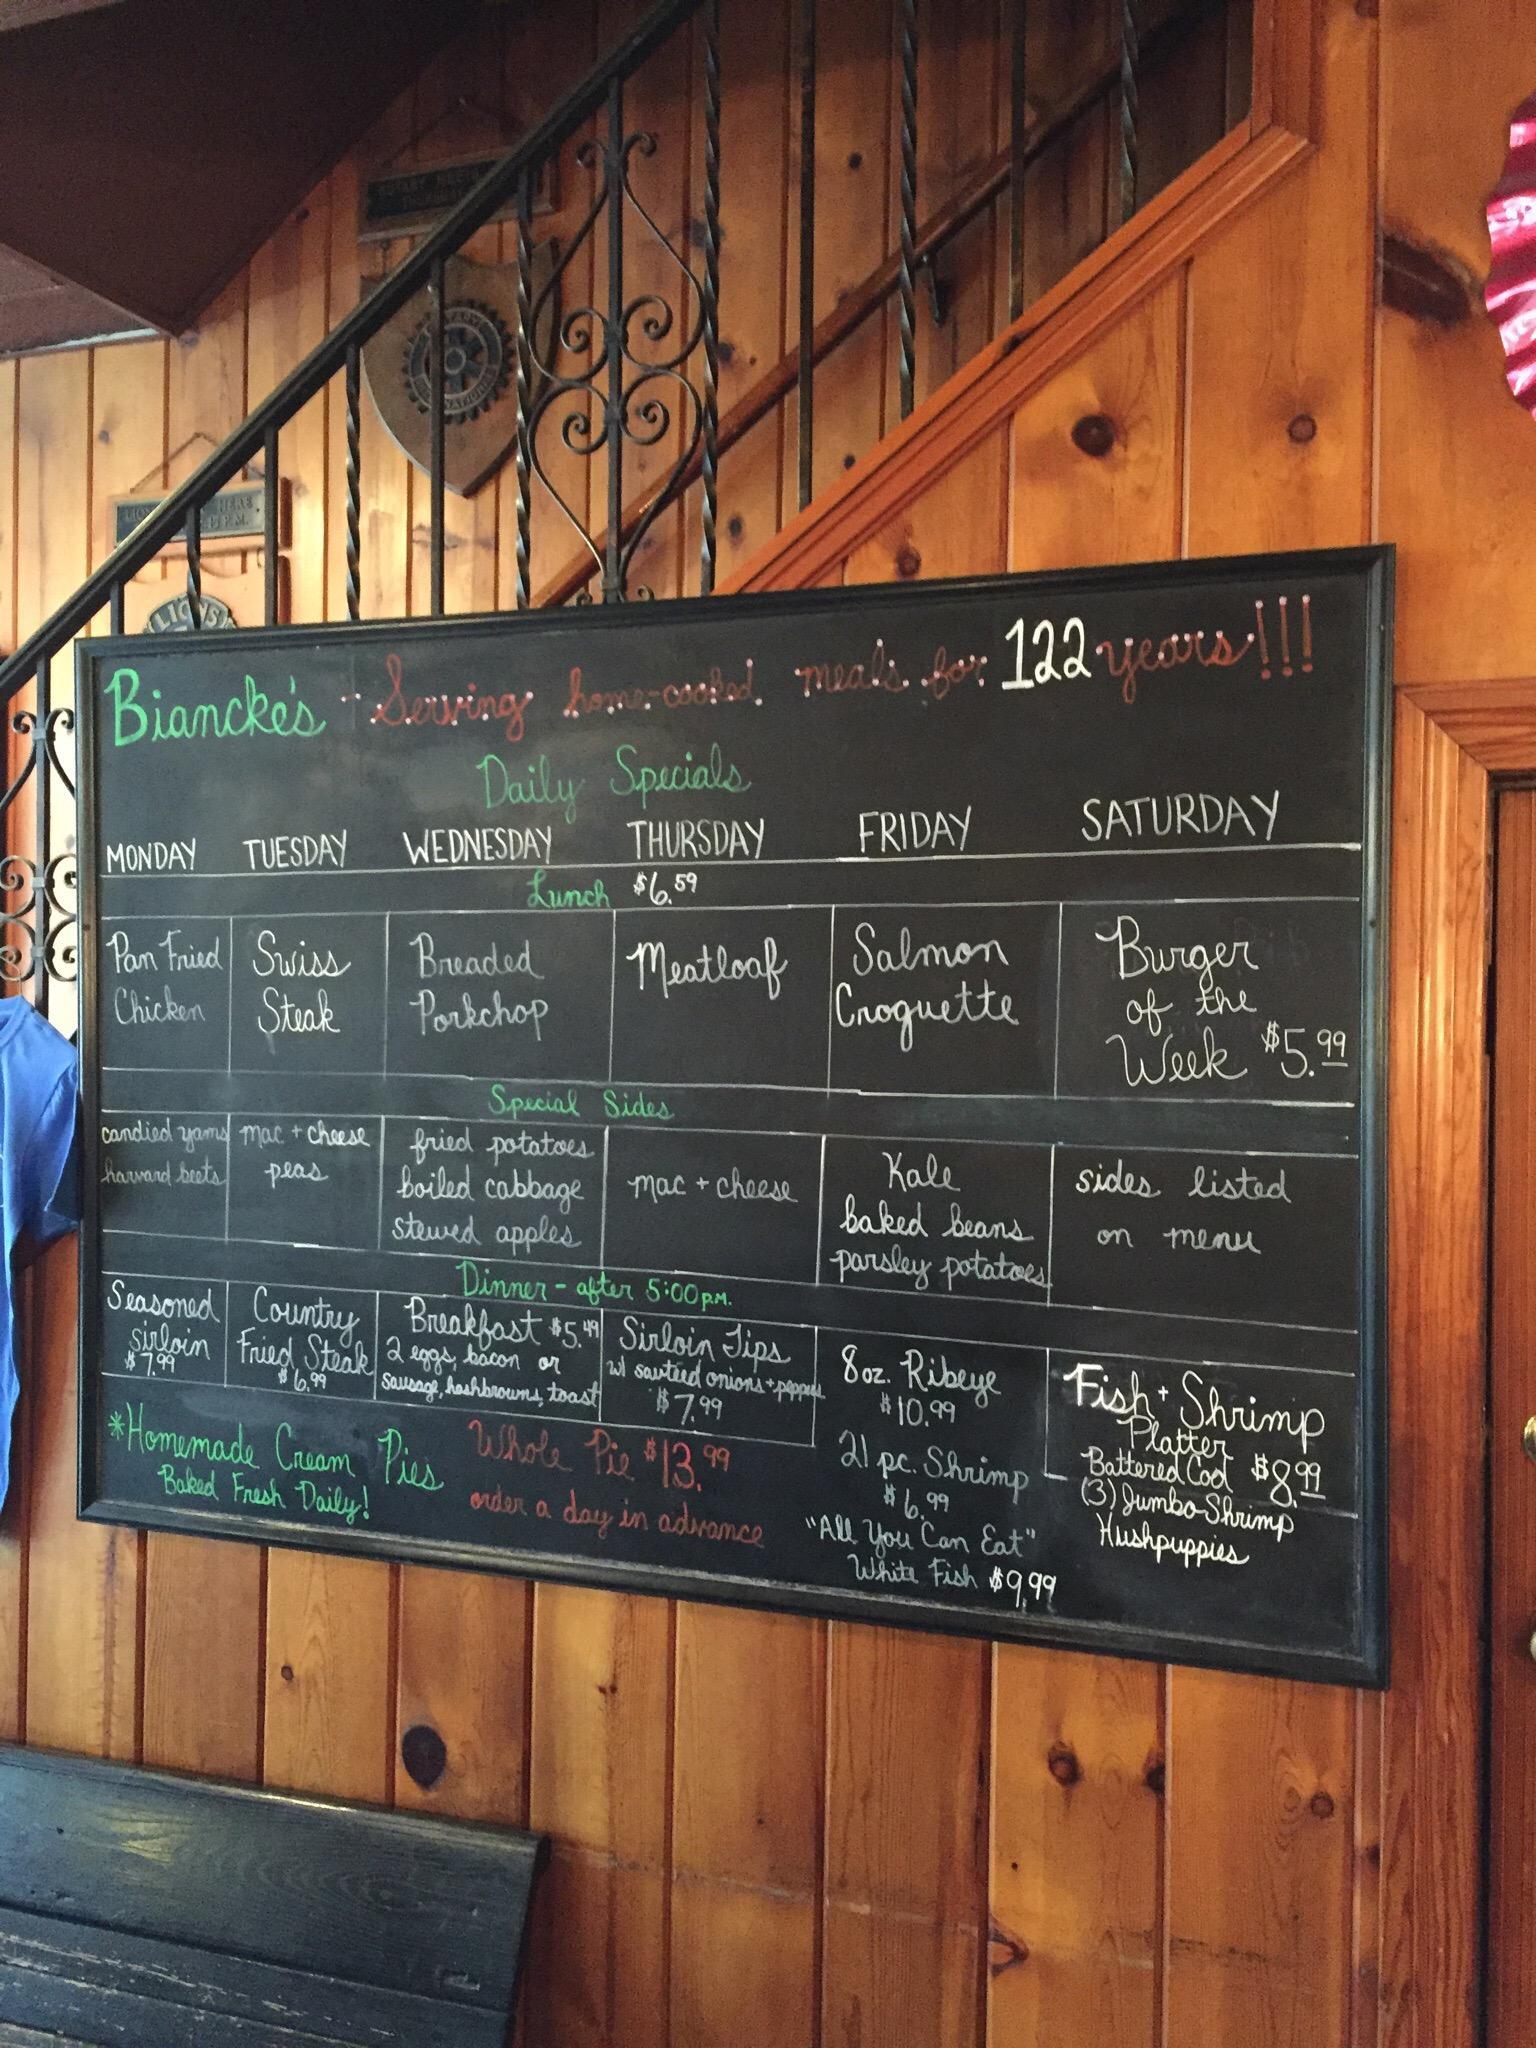 ROTARY MEETS
THURSDAY
ROTARY
INTERNATIONAL
HERE
P.M.
LIONS
Biancke's - Serving home-cooked meals for 122 years!!!
Daily Specials
MONDAY TUESDAY WEDNESDAY THURSDAY FRIDAY SATURDAY
Lunch $6.59
Pan Fried
Chicken
Swiss
Steak
Breaded
Porkchop
Meatloaf
Salmon
Croquette
Burger
of the
Week $5.99
Special Sides
candied yams
harvard beets
mac + cheese
peas
fried potatoes
boiled cabbage
stewed apples
mac + cheese
Kale
baked beans
parsley potatoes
sides listed
on menu
Dinner - after 5:00 P.M.
Seasoned
sirloin
$7.99
Country
Fried Steak
$6.99
Breakfast $5.49
2 eggs, bacon or
sausage, hashbrowns, toast
Sirloin Tips
w/ sauteed onions + peppers
$7.99
8 oz. Ribeye
$10.99
21 pc. Shrimp
$6.99
"All You Can Eat"
White Fish $9.99
Fish + Shrimp
Platter
Battered Cod $8.99
(3) Jumbo Shrimp
Hushpuppies
*Homemade Cream Pies
Baked Fresh Daily!
Whole Pie $13.99
order a day in advance